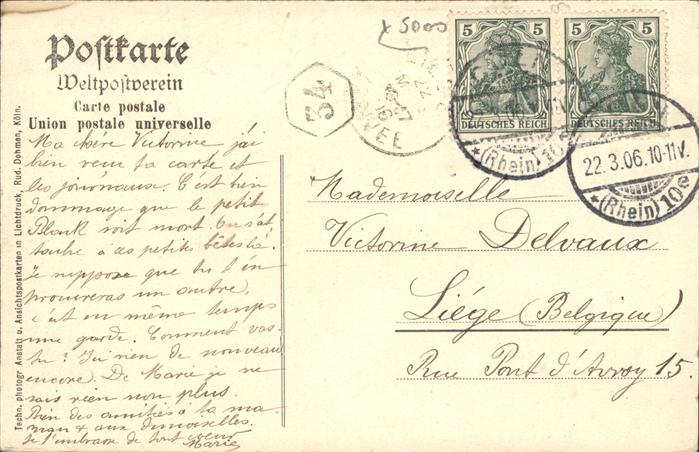 x 5000
Postkarte
Weltpostverein
Carte postale
Union postale universelle
Ma chère Victorine j'ai
bien reçu ta carte et
les journaux. C'est bien
dommage que le petit
Black soit mort. On s'at-
tache à ces petites bêtes là.
Je suppose que tu t'en
procureras un autre,
c'est en même temps
une garde. Comment vas-
tu? J'ai rien de nouveau
encore. De Marie je ne
sais rien non plus.
Bien des amitiés à ta ma-
man & aux demoiselles.
Je t'embrasse de tout coeur
Marie
Techn. photogr. Anstalt u. Ansichtspostkarten in Lichtdruck, Rud. Dohmen, Köln.
34
5 5
DEUTSCHES REICH
5 5
DEUTSCHES REICH
(Rhein)
22.3.06.10-11V.
*(Rhein) 10e
Mademoiselle
Victorine Delvaux
Liége (Belgique)
Rue Pont d'Avroy 15.